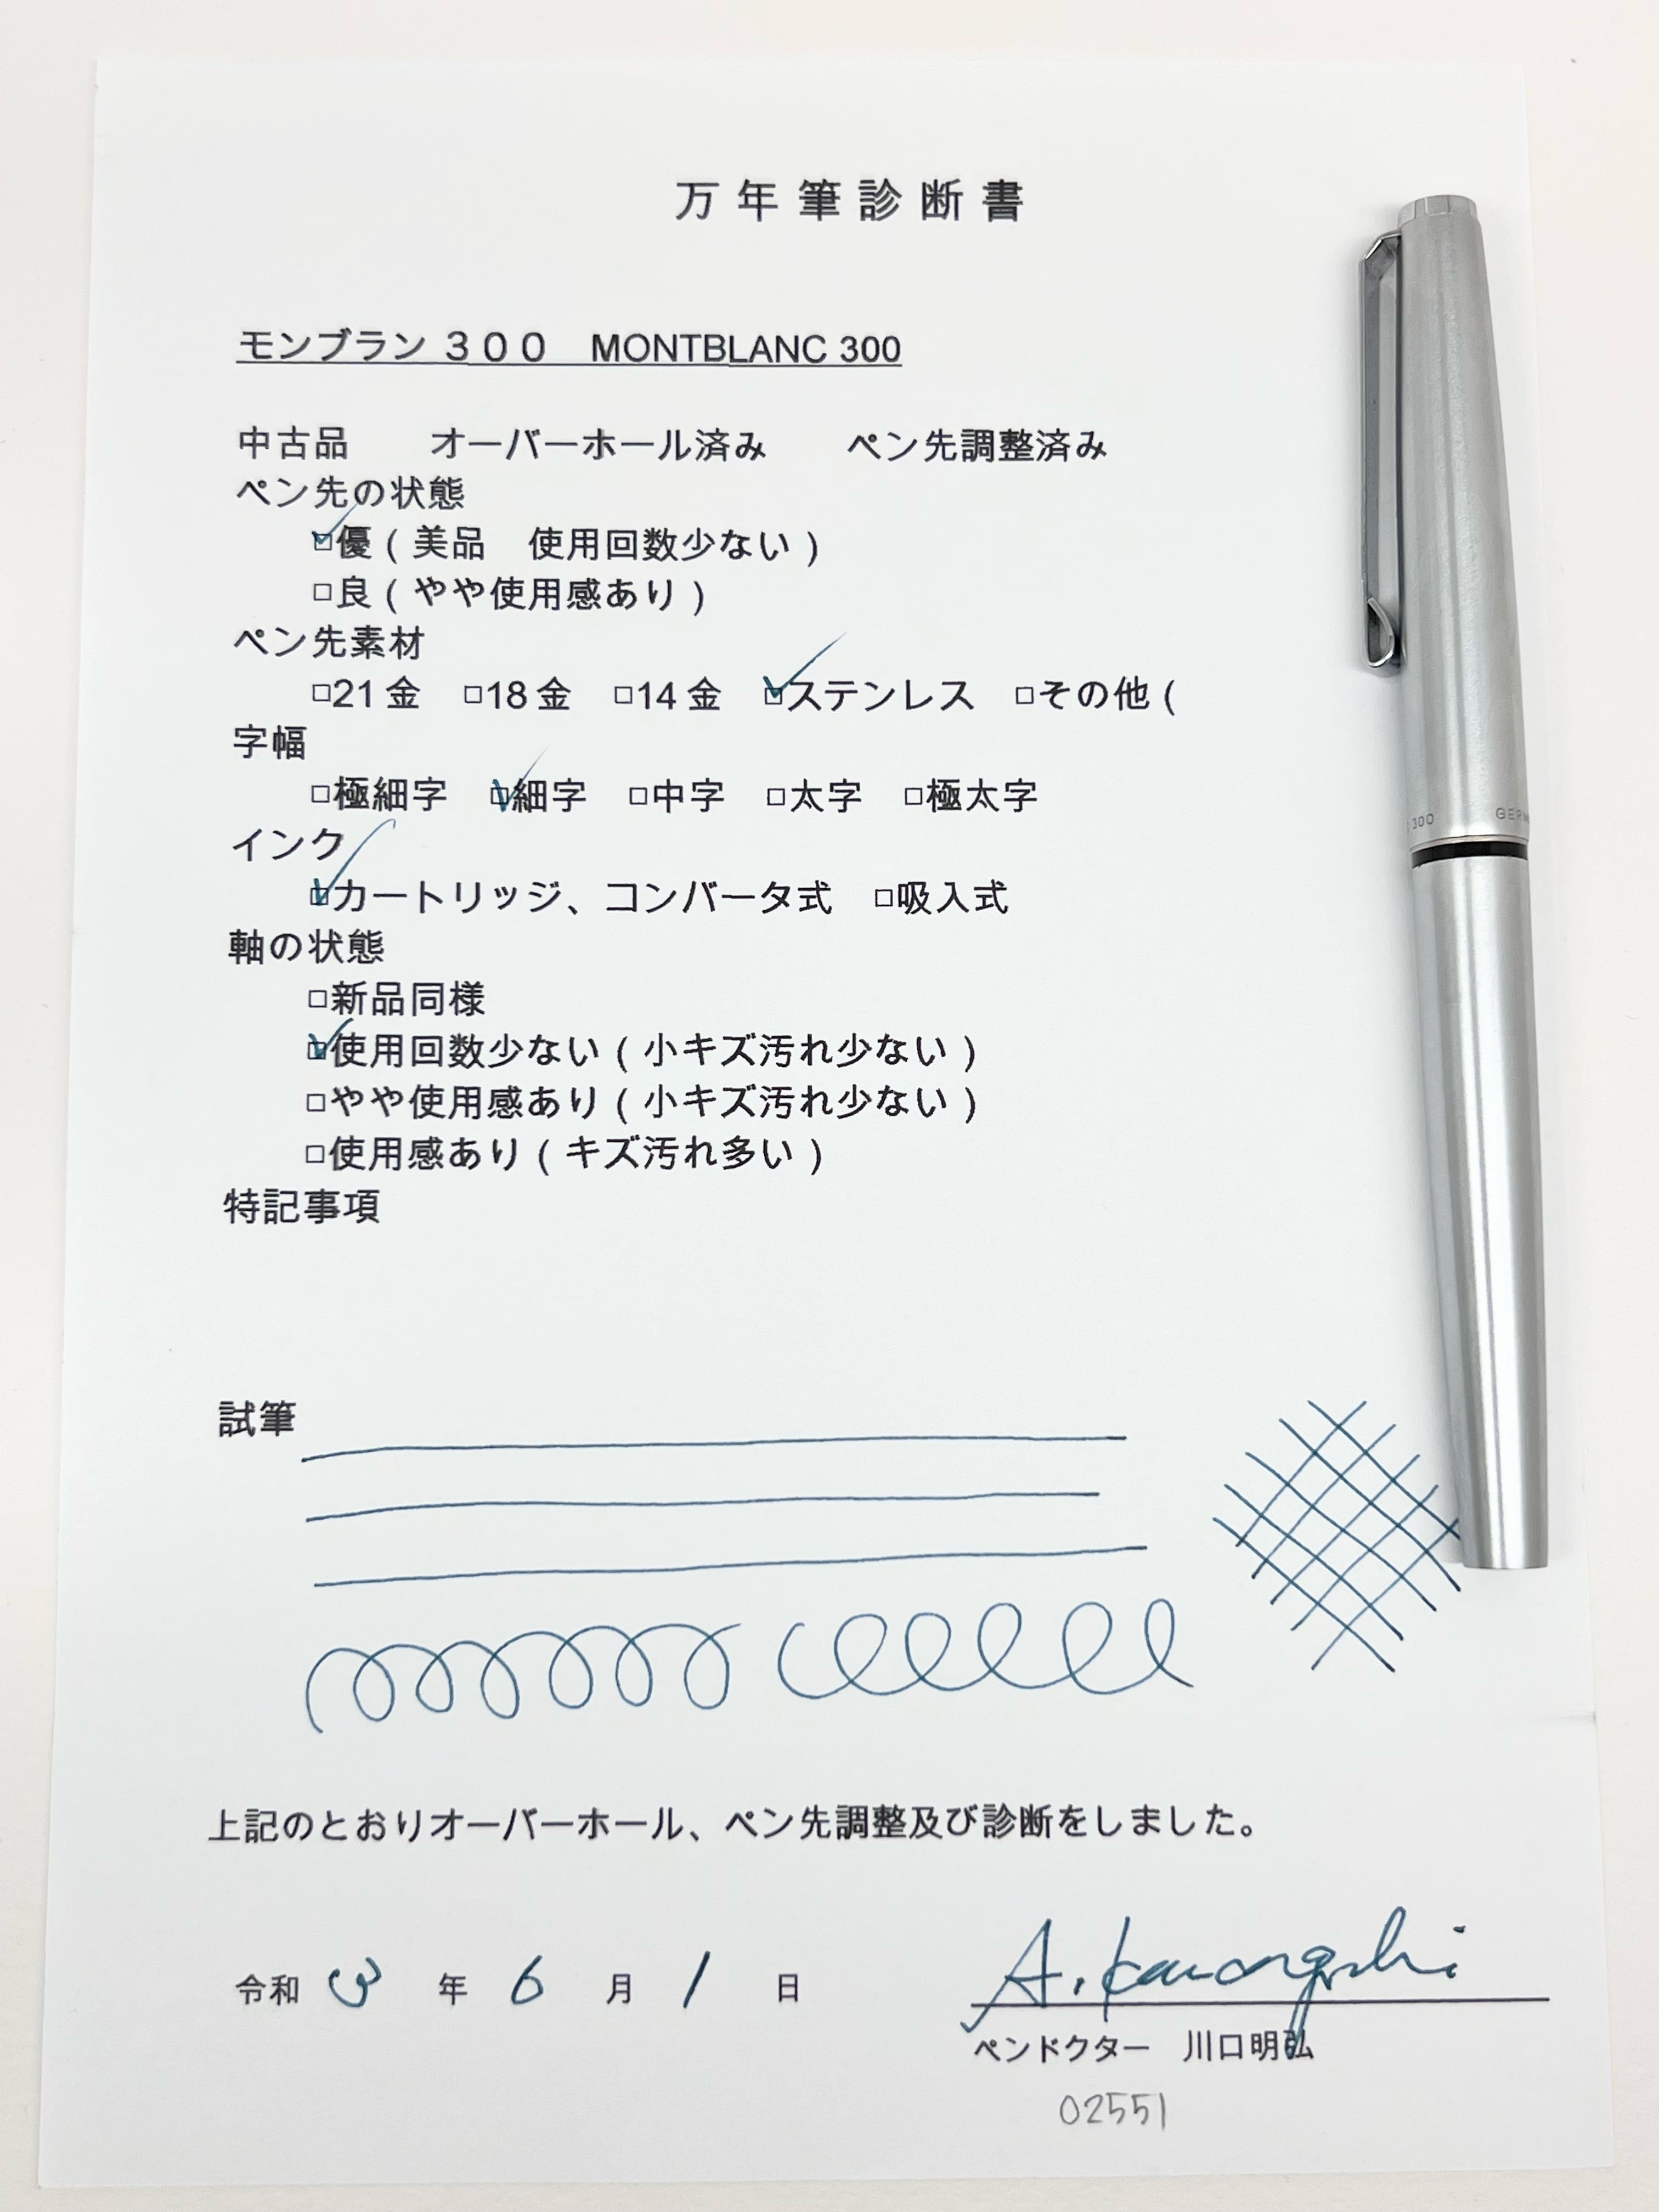 万年筆診断書
モンブラン ３００　MONTBLANC 300
中古品　　オーバーホール済み　　ペン先調整済み
ペン先の状態
☑優（美品　使用回数少ない）
□良（やや使用感あり）
ペン先素材
□21金　□18金　□14金　☑ステンレス　□その他（
字幅
□極細字　☑細字　□中字　□太字　□極太字
インク
☑カートリッジ、コンバータ式　□吸入式
300 GERM
軸の状態
□新品同様
☑使用回数少ない（小キズ汚れ少ない）
□やや使用感あり（小キズ汚れ少ない）
□使用感あり（キズ汚れ多い）
特記事項
試筆
上記のとおりオーバーホール、ペン先調整及び診断をしました。
令和 3 年 6 月 1 日
A. Kawaguchi
ペンドクター　川口明弘
02551